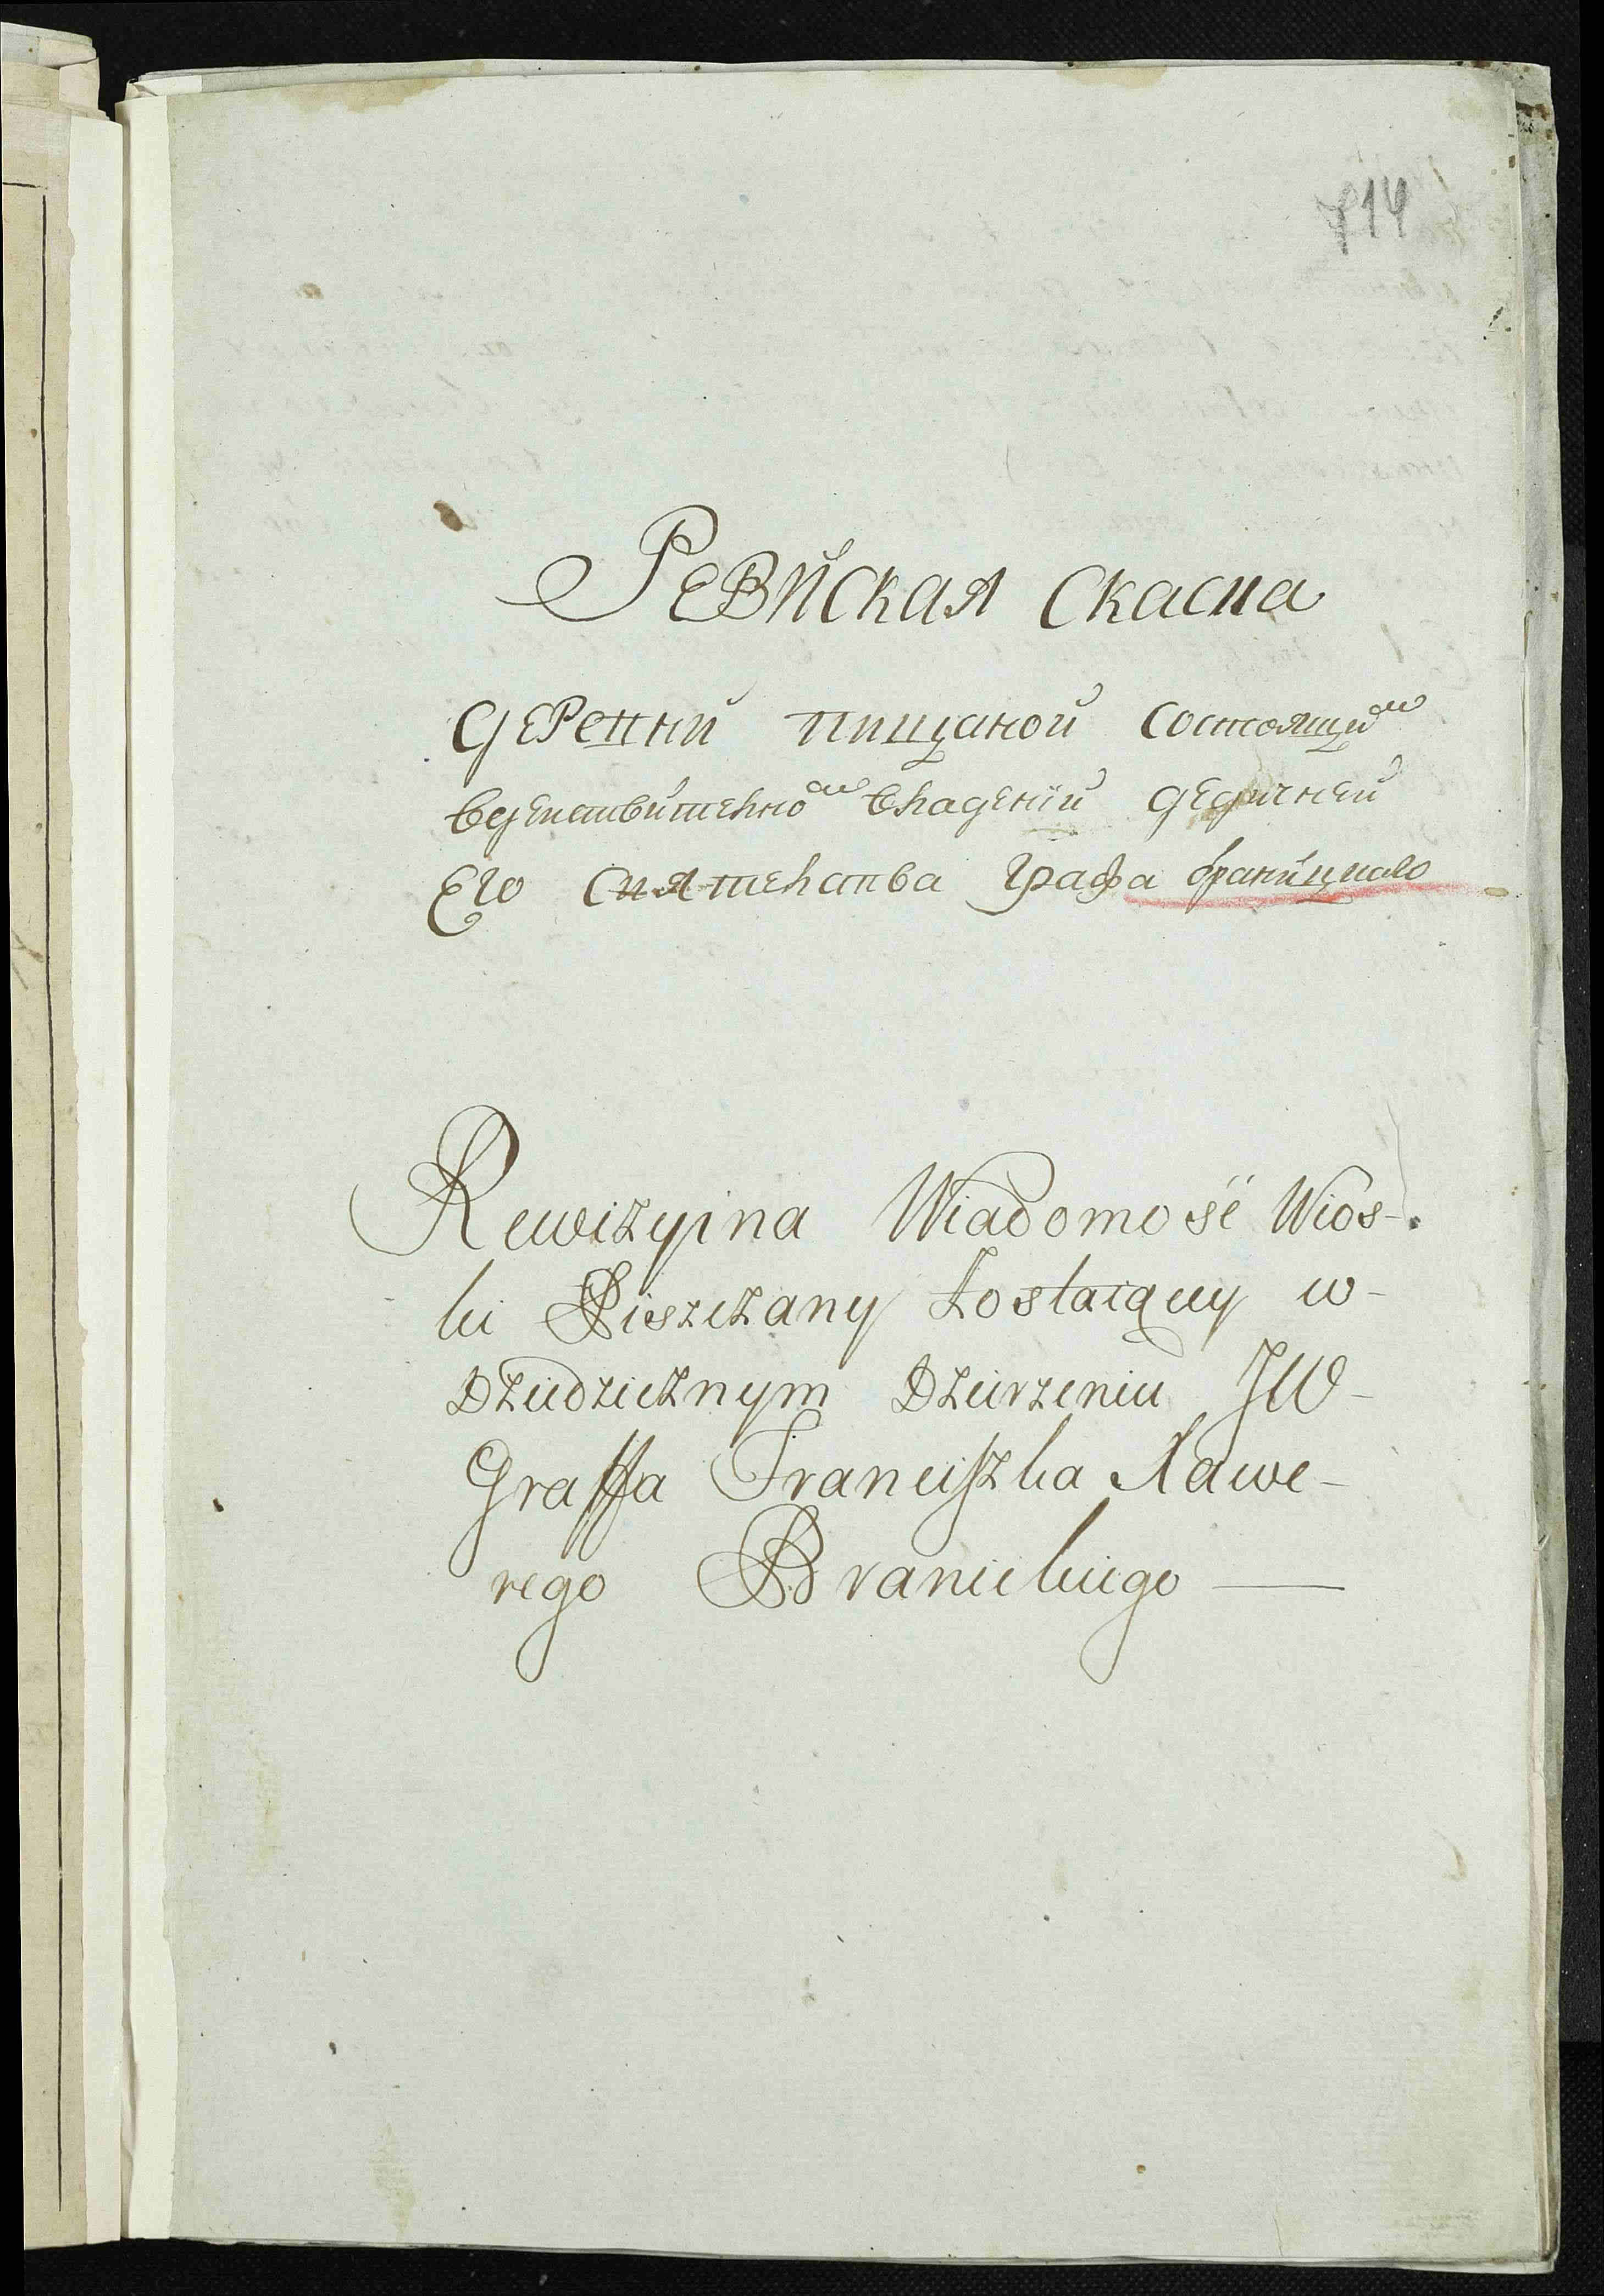 714
Ревиская Скаска
деревни пищаной состоящи й
вдействително м владении дедичнеи
Его Сиятелства графа браницкаго
Rewizyina Wiadomość Wios-
ki Piszczany Zostaiący w-
Dziedzicznym Dzierzeniu JW-
Graffa Franciszka Xawe-
rego Branickiego —